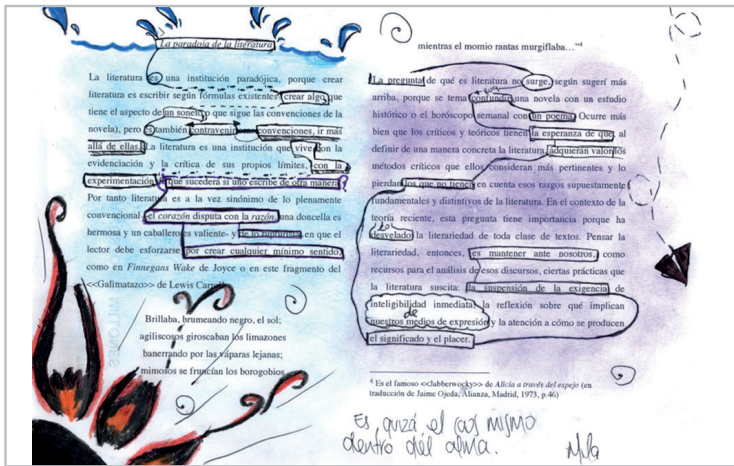 La paradoja de la literatura
La literatura es una institución paradójica, porque crear
literatura es escribir según fórmulas existentes, crear algo que
tiene el aspecto de un soneto o que sigue las convenciones de la
novela), pero es también contravenir convenciones, ir más
allá de ellas. La literatura es una institución que vive con la
evidenciación y la crítica de sus propios límites, con la
experimentación qué sucederá si uno escribe de otra manera?
Por tanto literatura es a la vez sinónimo de lo plenamente
convencional -el corazón disputa con la razón, una doncella es
hermosa y un caballero es valiente- y de lo rupturista, en que el
lector debe esforzarse por crear cualquier mínimo sentido,
como en Finnegans Wake de Joyce o en este fragmento del
<<Galimatazo>> de Lewis Carroll
Brillaba, brumeando negro, el sol;
agiliscosos giroscaban los limazones
banerrando por las váparas lejanas;
mimosos se fruncían los borogobios
mientras el momio rantas murgiflaba…"⁴
La pregunta de qué es literatura no surge, según sugerí más
arriba, porque se tema confundir una novela con un estudio
histórico o el horóscopo semanal con un poema. Ocurre más
bien que los críticos y teóricos tienen la esperanza de que, al
definir de una manera concreta la literatura, adquieran valor los
métodos críticos que ellos consideran más pertinentes y lo
pierdan los que no tienen en cuenta esos rasgos supuestamente
fundamentales y distintivos de la literatura. En el contexto de la
teoría reciente, esta pregunta tiene importancia porque ha
desvelado la literariedad de toda clase de textos. Pensar la
literariedad, entonces, es mantener ante nosotros, como
recursos para el análisis de esos discursos, ciertas prácticas que
la literatura suscita: la suspensión de la exigencia de
inteligibilidad inmediata, la reflexión sobre qué implican
de
nuestros medios de expresión y la atención a cómo se producen
el significado y el placer.
⁴ Es el famoso <<Jabberwocky>> de Alicia a través del espejo (en
traducción de Jaime Ojeda, Alianza, Madrid, 1973, p.46)
Es, quizá el caos mismo
dentro del alma.